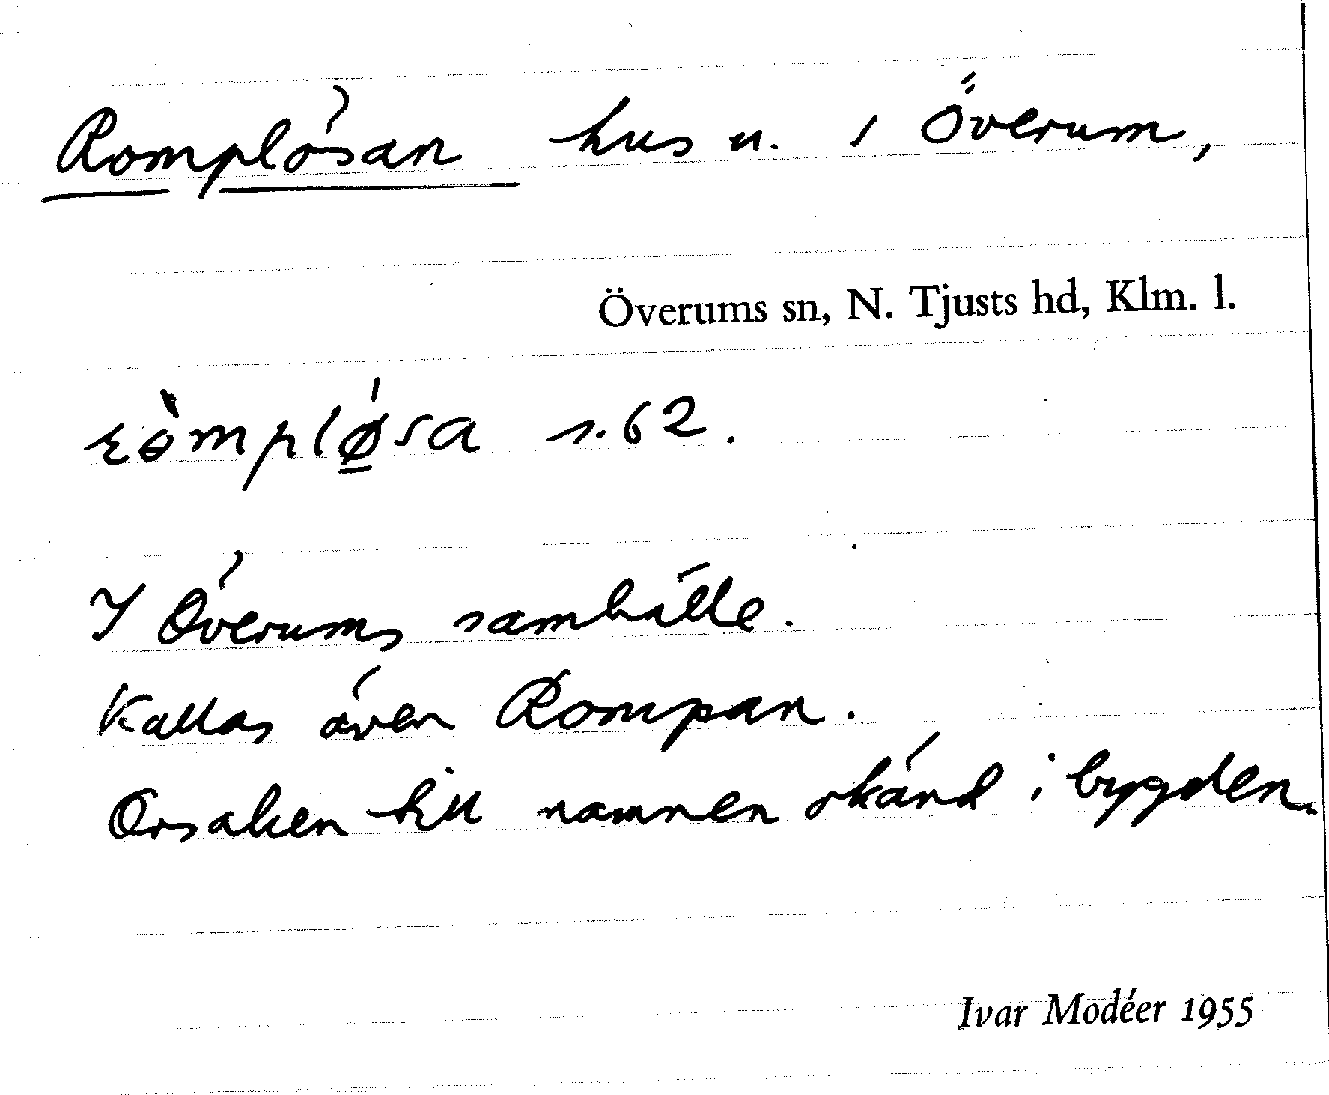 Romplösan hus n. i Överum,
Överums sn, N. Tjusts hd, Klm. l.
ròmplǿ̲sa s. 62.
I Överums samhälle.
Kallas även Rompan.
Orsaken till namnen okänd i bygden.
Ivar Modéer 1955